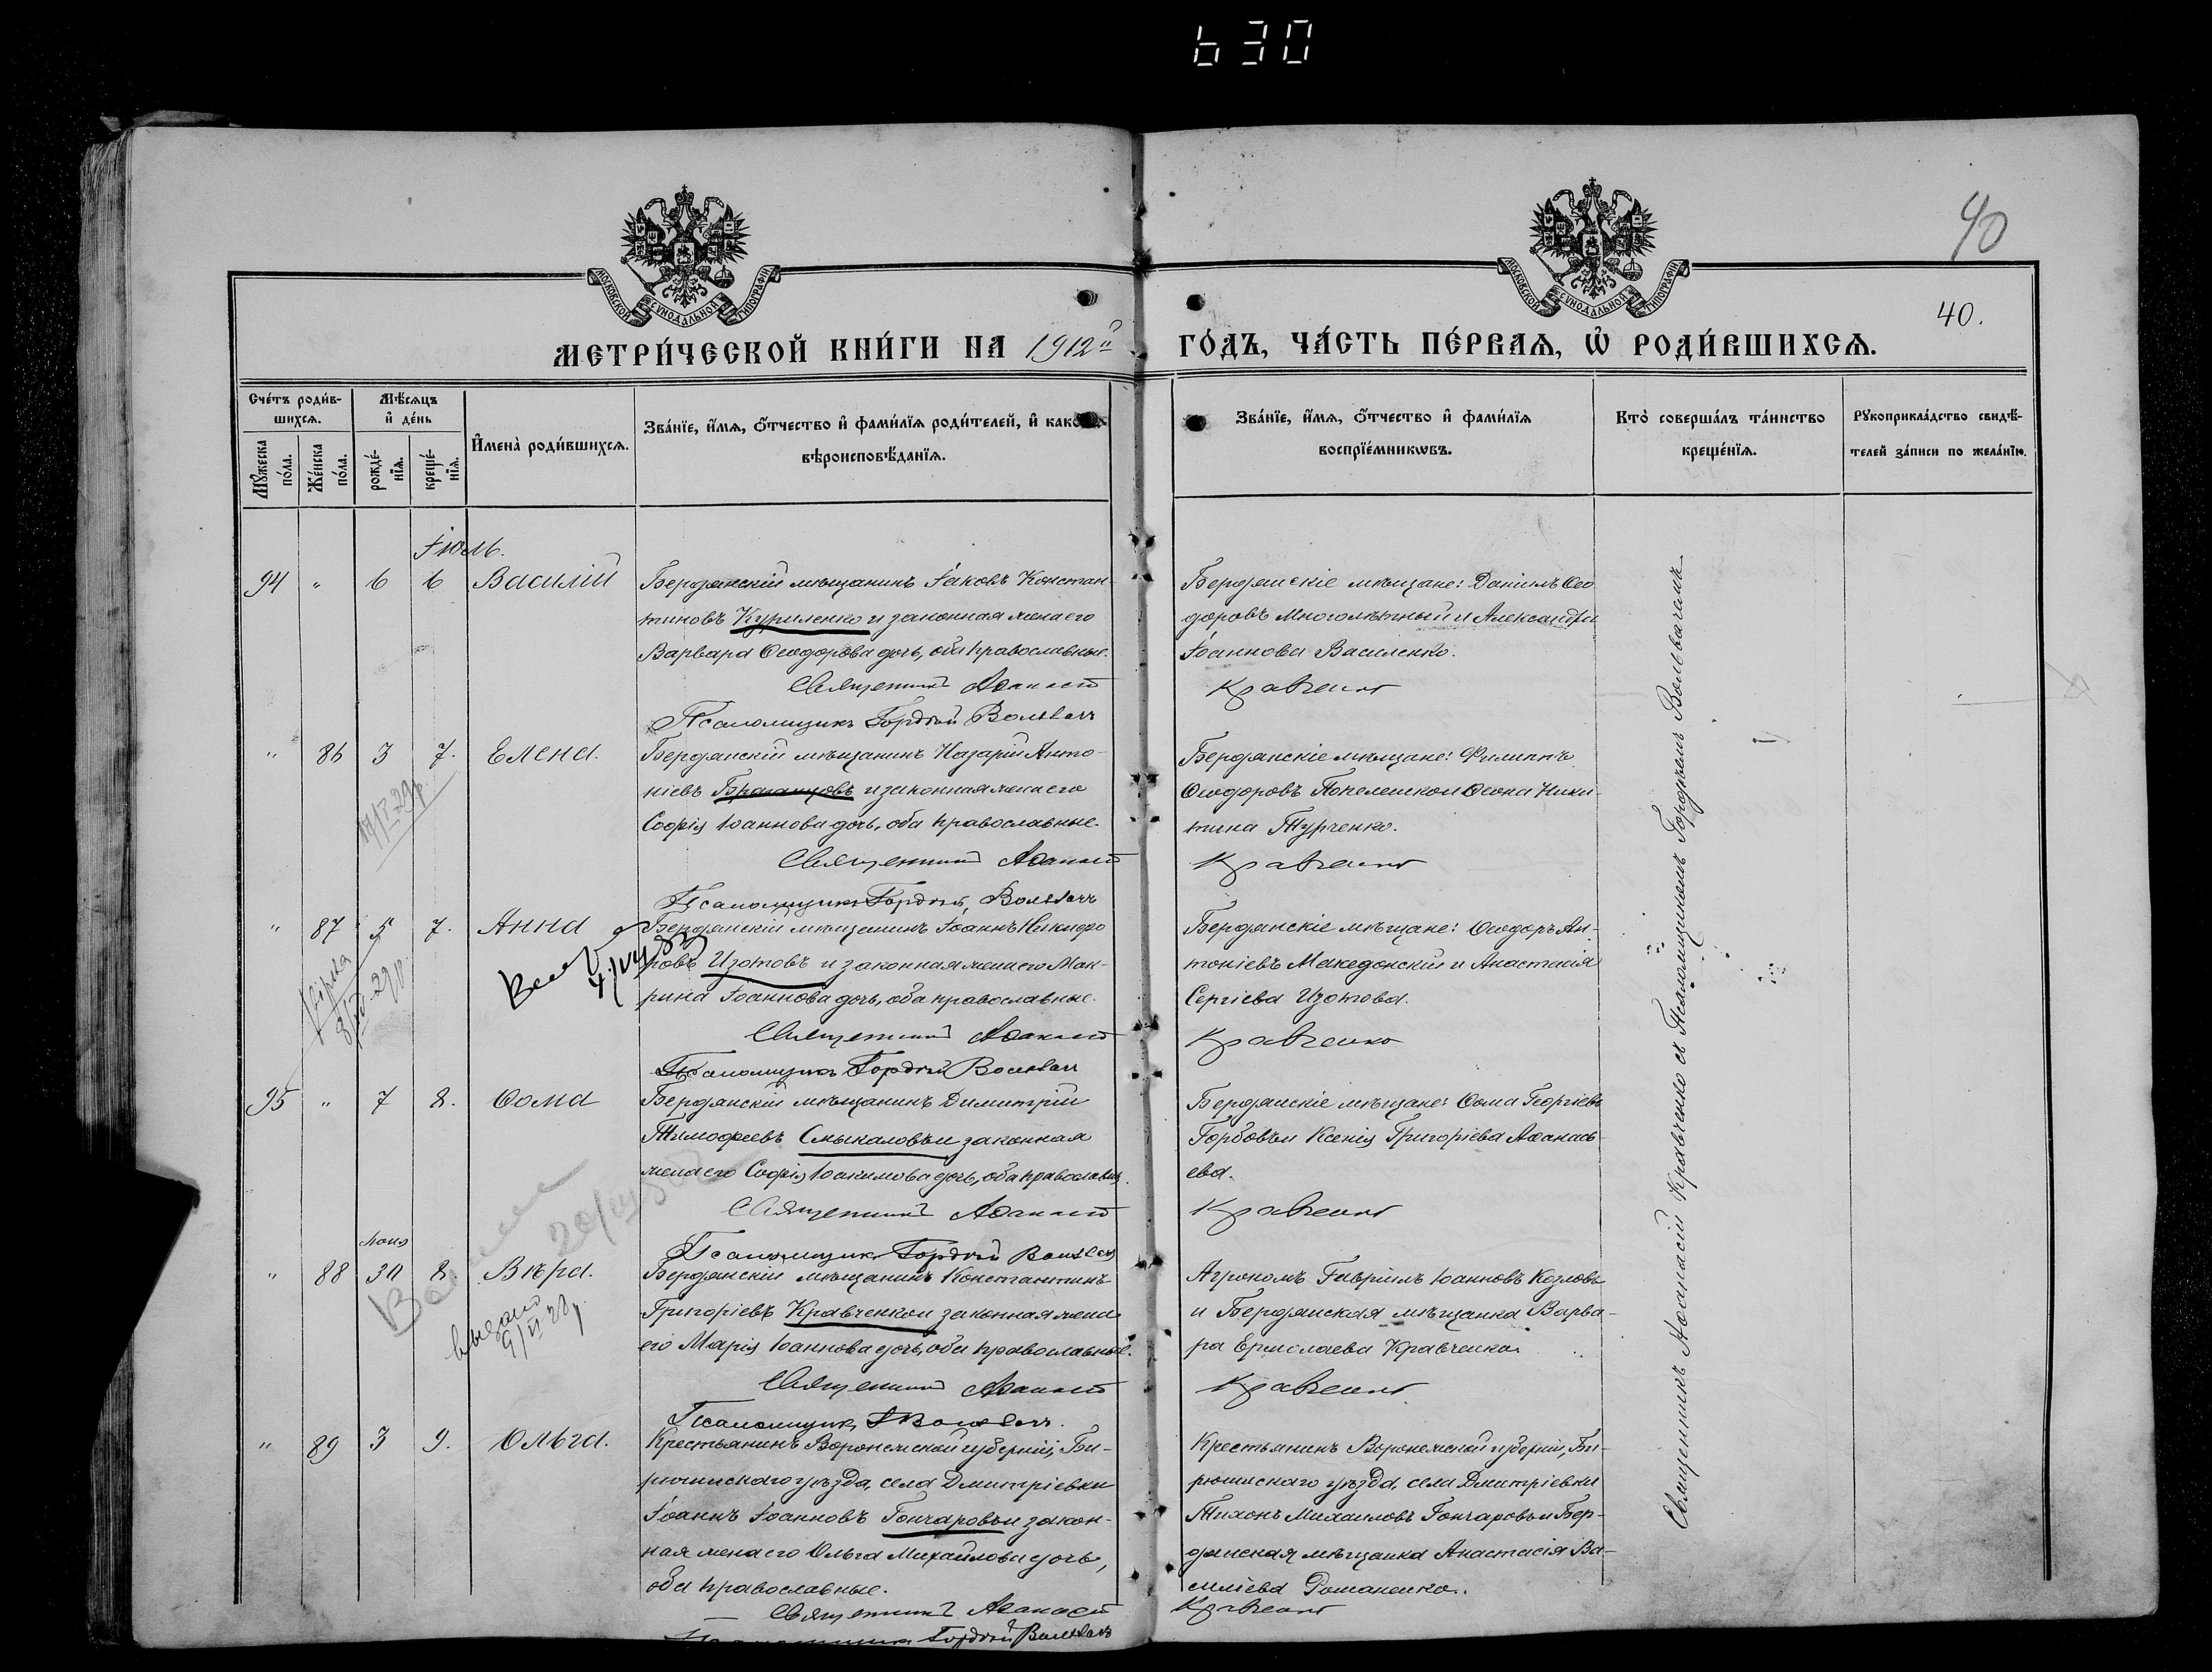 630
40
40.
МОСКОВСКОЙ СѴНОДАЛЬНОЙ ТИПОГРАФІИ
МОСКОВСКОЙ СѴНОДАЛЬНОЙ ТИПОГРАФІИ
МЕТРИ́ЧЕСКОЙ КНИ́ГИ НА 1912й ГО́ДЪ, ЧА́СТЬ ПЕ́РВАѦ, Ѡ҆ РОДИ́ВШИХСѦ.
Сче́тъ роди́в-
шихсѧ.
Мꙋ́жеска по́ла.
Же́нска по́ла.
Мѣ́сѧцъ
и҆ де́нь
рожде́-
нїѧ.
креще́-
нїѧ.
И҆мена̀ роди́вшихсѧ.
Зва́нїе, и҆́мѧ, ѻ҆́тчество и҆ фами́лїѧ роди́телей, и҆ како́
вѣроисповѣ́данїѧ.
Зва́нїе, и҆́мѧ, ѻ҆́тчество и҆ фами́лїѧ
воспрїе́мникѡвъ.
Кто̀ соверша́лъ та́инство
креще́нїѧ.
Рꙋкоприкла́дство свидѣ́-
телей за́писи по жела́нїю.
Іюль.
94 " 6 6 Василій
Бердянскій мѣщанинъ Іаковъ Констан-
тиновъ Куриленко и законная жена его
Варвара Ѳеодорова дочь, оба православные.
Священникъ Аѳанасій
Псаломщикъ Гордѣй Вольвачъ
Бердянскіе мѣщане: Даніилъ Ѳео
доровъ Многолѣтный и Александра
Іоаннова Василенко.
Кравченко
" 86 3 7. Елена.
Бердянскій мѣщанинъ Назарій Анто-
ніевъ и законная жена его
Софія Іоаннова дочь, оба православные.
Священникъ Аѳанасій
Псаломщикъ Гордѣй Вольвачъ
Бердянскіе мѣщане: Филиппъ
Ѳеодоровъ и Ѳеона Ники-
тина Турченко.
Кравченко
" 87 5 7. Анна
Бердянскій мѣщанинъ Іоаннъ Никифо
ровъ Изотовъ и законная жена его Мак-
рина Іоаннова дочь, оба православные.
Священникъ Аѳанасій
Псаломщикъ Гордѣй Вольвачъ
Бердянскіе мѣщане: Ѳеодоръ Ан-
тоніевъ Македонскій и Анастасія
Сергіева Изотова.
Кравченко
95 " 7 8. Ѳома
Бердянскій мѣщанинъ Димитрій
Тимофеевъ Смыкаловъ и законная
жена его Софія Іоакимова дочь, оба православн.
Священникъ Аѳанасій
Псаломщикъ Гордѣй Вольвачъ
Бердянскіе мѣщане: Ѳома Георгіевъ
Горбовъ и Ксенія Григоріева Аѳанась
ева.
Кравченко
Іюня
" 88 30 8. Вѣра.
Бердянскій мѣщанинъ Константинъ
Григоріевъ Кравченко и законная жена
его Марія Іоаннова дочь, оба православные.
Священникъ Аѳанасій
Псаломщикъ Г Вольвачъ.
Агрономъ Гавріилъ Іоанновъ Козловъ
и Бердянская мѣщанка Варва-
ра Ермолаева Кравченко.
Кравченко
" 89 3 9. Ольга.
Крестьянинъ Воронежской губерніи, Би-
рюченскаго уѣзда, села Дмитріевки
Іоаннъ Іоанновъ Гончаровъ и закон-
ная жена его Ольга Михайлова дочь,
оба православные.
Священникъ Аѳанасій
Псаломщикъ Гордѣй Вольвачъ
Крестьянинъ Воронежской губерніи, Би-
рюченскаго уѣзда, села Дмитріевки
Тихонъ Михаиловъ Гончаровъ и Бер-
дянская мѣщанка Анастасія Ва-
силіева Романенко.
Кравченко
Священникъ Аѳанасій Кравченко съ Псаломщикомъ Гордѣемъ Вольвачемъ